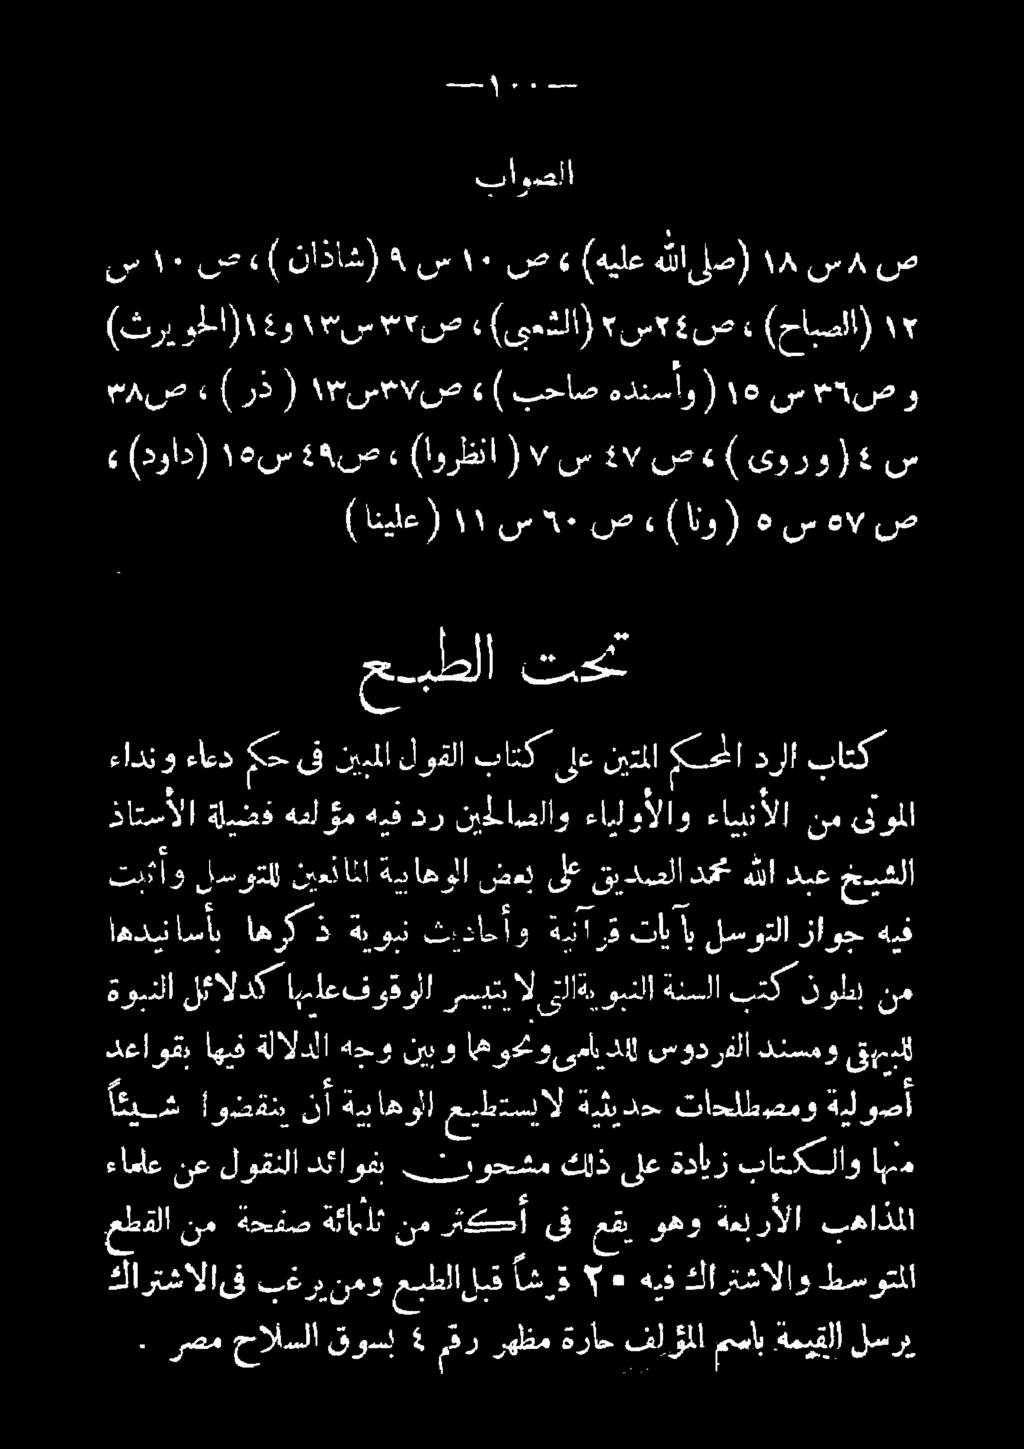 —١٠٠—
الصواب
ص ٨ س ١٨ (صلى الله عليه) ، ص ١٠ س ٩ (شاذان) ، ص ١٠ س
١٢ (الصباح) ، ص٢٤س٢ (الشعبى) ، ص٣٢س١٣ و١٤(الحويرث)
و ص٣٦ س ١٥ (وأسنده صاحب) ، ص٣٧س١٣ (ذر) ، ص٣٨
س ٤ (وروى) ، ص ٤٧ س ٧ (انظروا) ، ص٤٩ س١٥ (داود) ،
ص ٥٧ س ٥ (ونا) ، ص ٦٠ س ١١ (علينا)
تحت الطبع
كتاب الرد المحكم المتين على كتاب القول المبين فى حكم دعاء ونداء
الموتى من الأنبياء والأولياء والصالحين رد فيه مؤلفه فضيلة الأستاذ
الشيخ عبد الله محمد الصديق على بعض الوهابية المانعين للتوسل وأثبت
فيه جواز التوسل بآيات قرآنية وأحاديث نبوية ذكرها بأسانيدها
من بطون كتب السنة النبوية التى لا يتيسر الوقوف عليها كدلائل النبوة
للبيهقى ومسند الفردوس للديلمى ونحوها وبين وجه الدلالة فيها بقواعد
أصولية ومصطلحات حديثية لايستطيع الوهابية أن ينقضوا شيئاً
منها والكتاب زيادة على ذلك مشحون بفوائد النقول عن علماء
المذاهب الأربعة وهو يقع فى أكثر من ثلثمائة صفحة من القطع
المتوسط والاشتراك فيه ٢٠ قرشاً قبل الطبع ومن يرغب فى الاشتراك
يرسل القيمة باسم المؤلف حارة مظهر رقم ٤ بسوق السلاح مصر .